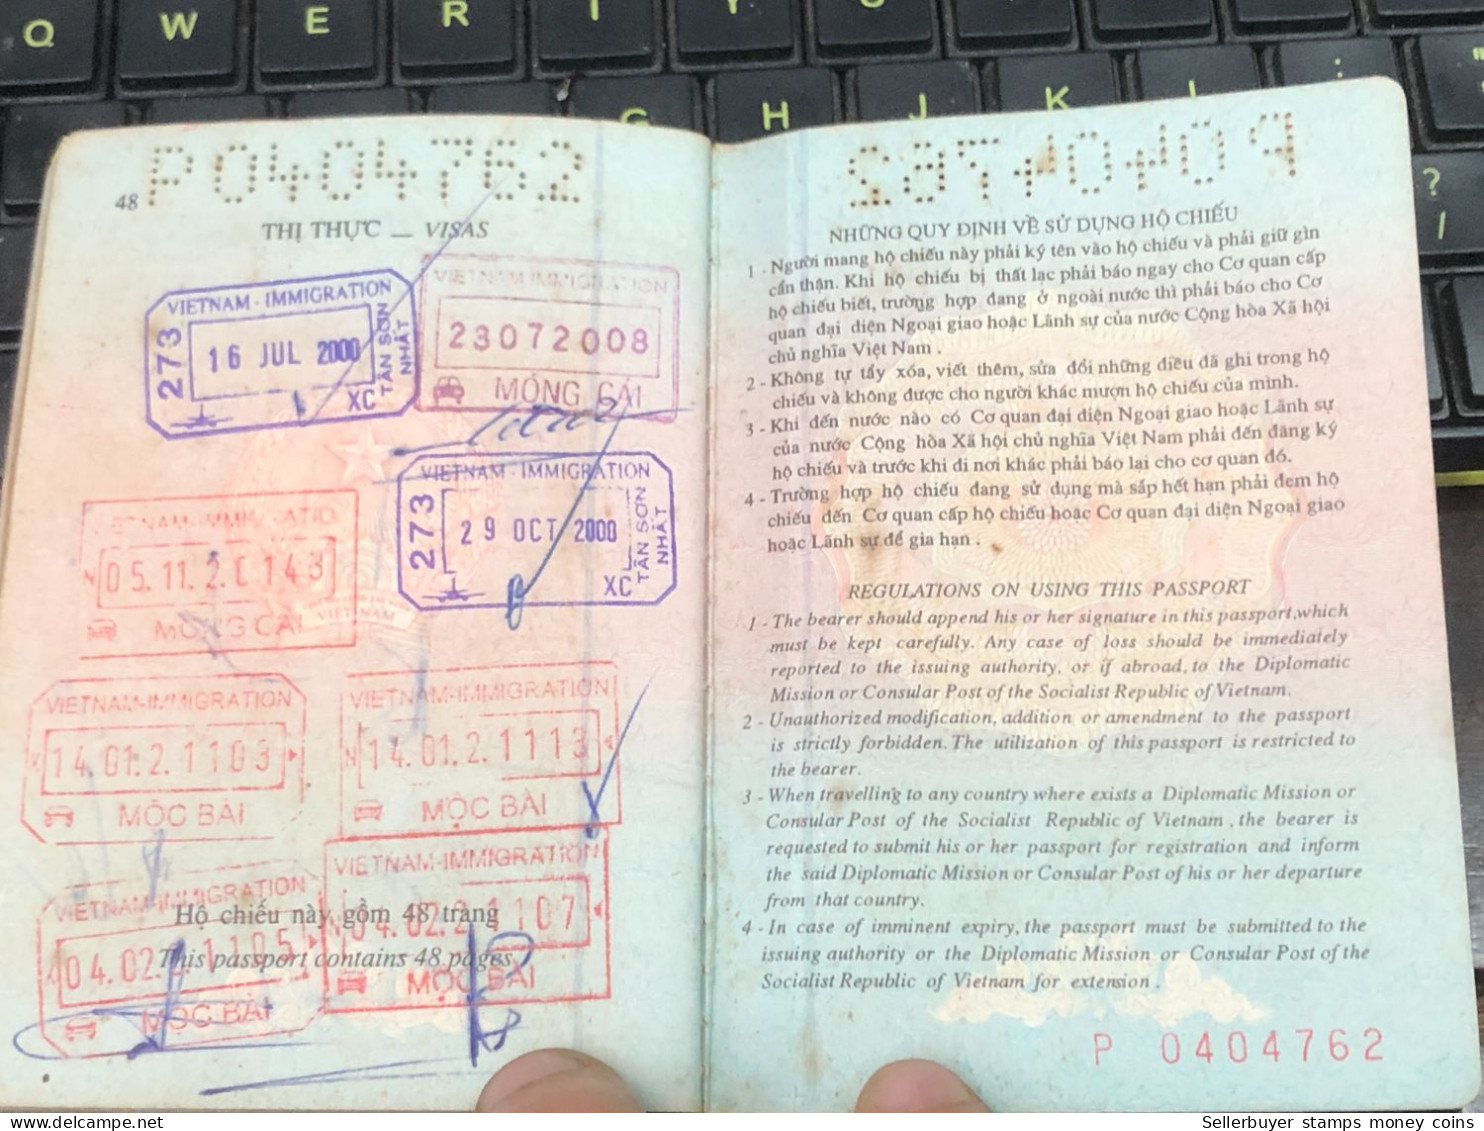 Q W E R T Y
G H J K L
P0404762
48
THỊ THỰC _ VISAS
VIETNAM - IMMIGRATION
273
16 JUL 2000
TÂN SƠN NHẤT
XC
VIETNAM IMMIGRATION
23072008
MÓNG CÁI
VIETNAM - IMMIGRATION
273
29 OCT 2000
TÂN SƠN NHẤT
XC
VIETNAM-IMMIGRATION
MÓNG CÁI
VIETNAM
VIETNAM-IMMIGRATION
14.01.2.1103
MỘC BÀI
VIETNAM-IMMIGRATION
14.01.2.1113
MỘC BÀI
VIETNAM-IMMIGRATION
04.02.2.1107
MỘC BÀI
VIETNAM-IMMIGRATION
04.02.2.1105
MỘC BÀI
Hộ chiếu này gồm 48 trang
This passport contains 48 pages
P0404762
NHỮNG QUY ĐỊNH VỀ SỬ DỤNG HỘ CHIẾU
1 - Người mang hộ chiếu này phải ký tên vào hộ chiếu và phải giữ gìn
cẩn thận. Khi hộ chiếu bị thất lạc phải báo ngay cho Cơ quan cấp
hộ chiếu biết, trường hợp đang ở ngoài nước thì phải báo cho Cơ
quan đại diện Ngoại giao hoặc Lãnh sự của nước Cộng hòa Xã hội
chủ nghĩa Việt Nam .
2 - Không tự tẩy xóa, viết thêm, sửa đổi những điều đã ghi trong hộ
chiếu và không được cho người khác mượn hộ chiếu của mình.
3 - Khi đến nước nào có Cơ quan đại diện Ngoại giao hoặc Lãnh sự
của nước Cộng hòa Xã hội chủ nghĩa Việt Nam phải đến đăng ký
hộ chiếu và trước khi đi nơi khác phải báo lại cho cơ quan đó.
4 - Trường hợp hộ chiếu đang sử dụng mà sắp hết hạn phải đem hộ
chiếu đến Cơ quan cấp hộ chiếu hoặc Cơ quan đại diện Ngoại giao
hoặc Lãnh sự để gia hạn .
REGULATIONS ON USING THIS PASSPORT
1 - The bearer should append his or her signature in this passport,which
must be kept carefully. Any case of loss should be immediately
reported to the issuing authority, or if abroad, to the Diplomatic
Mission or Consular Post of the Socialist Republic of Vietnam.
2 - Unauthorized modification, addition or amendment to the passport
is strictly forbidden. The utilization of this passport is restricted to
the bearer.
3 - When travelling to any country where exists a Diplomatic Mission or
Consular Post of the Socialist Republic of Vietnam , the bearer is
requested to submit his or her passport for registration and inform
the said Diplomatic Mission or Consular Post of his or her departure
from that country.
4 - In case of imminent expiry, the passport must be submitted to the
issuing authority or the Diplomatic Mission or Consular Post of the
Socialist Republic of Vietnam for extension .
P 0404762
Sellerbuyer stamps money coins